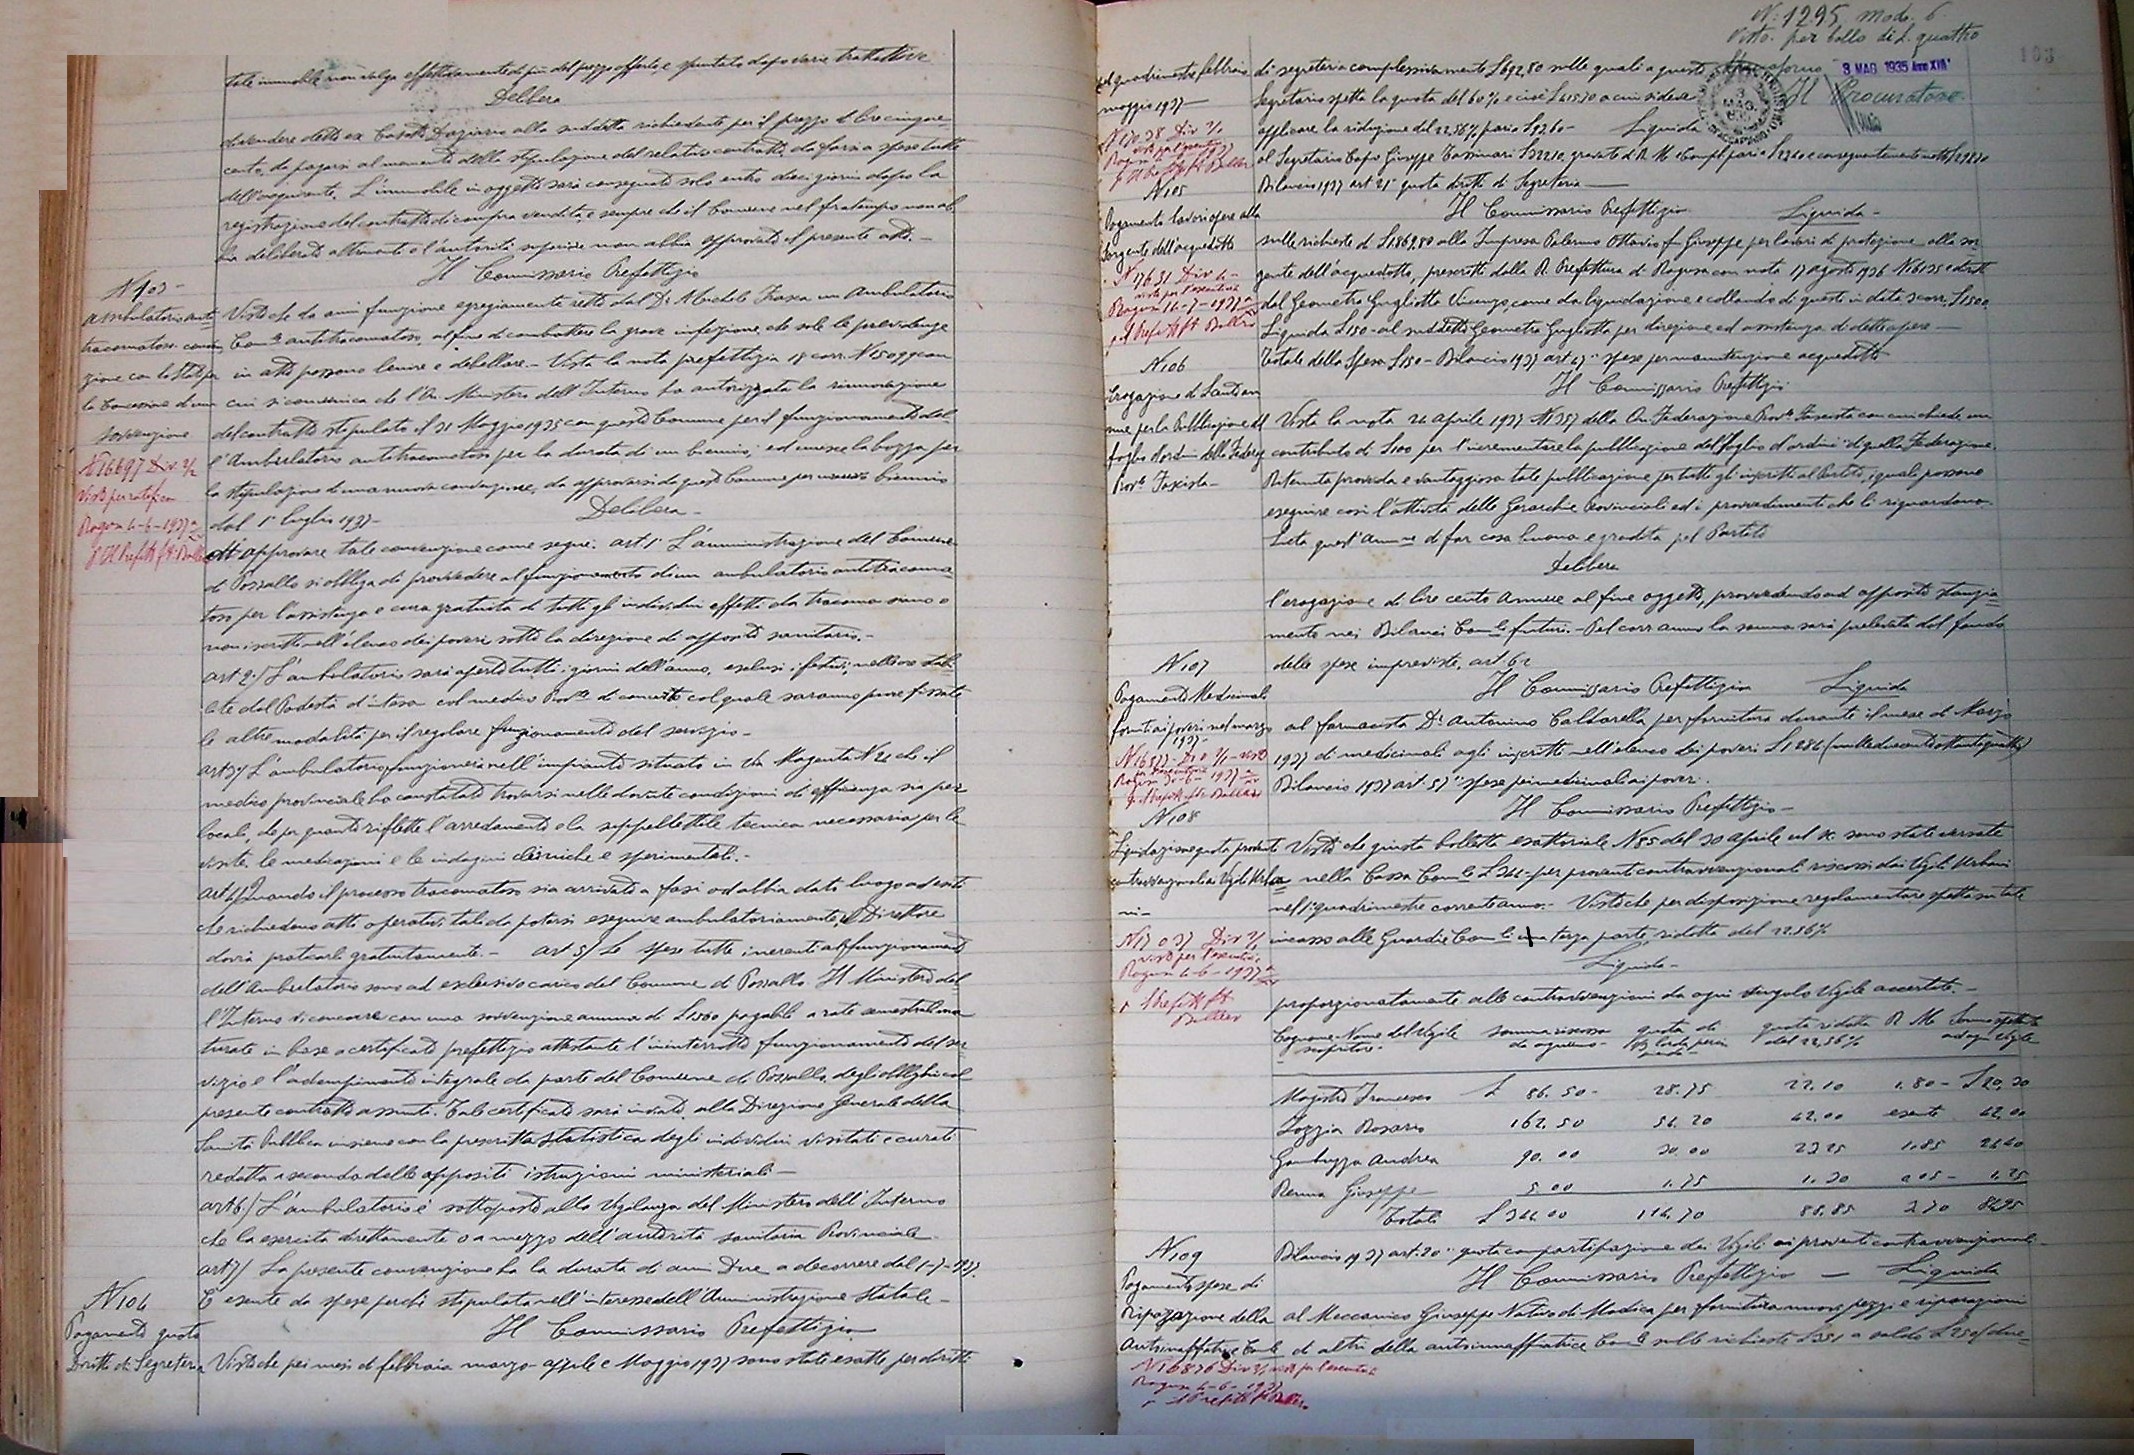 tale immobile non valga effettivamente di più del prezzo offerto, e spuntato dopo varie trattative
Delibera
di vendere detto ex Casotto Daziario alla suddetta richiedente per il prezzo di lire cinque
cento, da pagarsi al momento della stipulazione del relativo contratto, da farsi a spese tutte
dell'acquirente. L'immobile in oggetto sarà consegnato solo entro dieci giorni dopo la
registrazione del contratto di compra vendita, e sempre che il Comune nel frattempo non ab
bia deliberato altrimenti o l'autorità superiore non abbia approvato il presente atto.-
Il Commissario Prefettizio
N 103-
Ambulatorio anti
tracomatoso conven
zione con lo Stato per
la concessione di una
sovvenzione
N 16697 Div 2/2
Visto per ratifica
Ragusa 4-6-1937
p Il Prefetto
Visto che da anni funziona egregiamente retto dal Dr Michele Frasca un Ambulatorio
Comle antitracomatoso al fine di combattere la grave infezione, che solo le previdenze
in atto possono lenire e debellare.- Vista la nota prefettizia 18 corr. N 15099 con
cui si comunica che l'On. Ministero dell'Interno ha autorizzata la rinnovazione
del contratto stipulato il 31 Maggio 1935 con questo Comune per il funzionamento del-
l'Ambulatorio antitracomatoso per la durata di un biennio, ed invia la bozza per
la stipulazione di una nuova convenzione, da approvarsi da questo Comune per un nuovo biennio
dal 1° luglio 1937- Delibera-
di approvare tale convenzione come segue: art. 1° L'amministrazione del Comune
di Pozzallo si obbliga di provvedere al funzionamento di un ambulatorio antitracoma
toso per l'assistenza e cura gratuita di tutti gli individui affetti da tracoma siano o
non iscritti nell'elenco dei poveri, sotto la direzione di apposito sanitario.-
art 2°/ L'ambulatorio sarà aperto tutti i giorni dell'anno, esclusi i festivi, nelle ore stabi
lite dal Podestà d'intesa col medico Provle di concerto col quale saranno pure fissate
le altre modalità per il regolare funzionamento del servizio-
art 3°/ L'ambulatorio funzionerà nell'impianto situato in Via Magenta N 24 che il
medico provinciale ha constatato trovarsi nelle dovute condizioni di efficienza sia per
locale, che per quanto riflette l'arredamento e la suppellettile tecnica necessaria per le
visite, le medicazioni e le indagini cliniche e sperimentali.-
art 4°/ Quando il processo tracomatoso sia arrivato a fasi od abbia dato luogo ad esiti
che richiedono atti operativi tali da potersi eseguire ambulatoriamente, il Direttore
dovrà praticarli gratuitamente.- art 5°/ Le spese tutte inerenti al funzionamento
dell'Ambulatorio sono ad esclusivo carico del Comune di Pozzallo Il Ministero del
l'Interno vi concorre con una sovvenzione annua di L 1560 pagabile a rate semestrali ma
turate in base a certificato prefettizio attestante l'ininterrotto funzionamento del ser
vizio e l'adempimento integrale da parte del Comune di Pozzallo degli obblighi col
presente contratto assunti. Tale certificato sarà inviato alla Direzione Generale della
Sanità Pubblica insieme con la prescritta statistica degli individui visitati e curati
redatta a seconda delle apposite istruzioni ministeriali-
art 6°/ L'ambulatorio è sottoposto alla Vigilanza del Ministero dell'Interno
che la esercita direttamente o a mezzo dell'autorità sanitaria Provinciale
art 7°/ La presente convenzione ha la durata di anni Due a decorrere dal 1-7-1937.
È esente da spese perché stipulata nell'interesse dell'Amministrazione Statale-
Il Commissario Prefettizio
N 104
Pagamento quota
Diritti di Segreteria
Visto che pei mesi di febbraio marzo aprile e Maggio 1937 sono state esatte per diritti
N. 1295 mod. 6
Visto per bollo di L. quattro
3 MAG 1935 Anno XIII
Il Procuratore
103
pel quadrimestre febbraio
maggio 1937-
di segreteria complessivamente L 692,80 sulle quali a questo
Segretario spetta la quota del 60% e cioè L 415,70 a cui si deve
applicare la riduzione del 22,56% pari a L 93,60- Liquida
al Segretario Capo Giuseppe Tassinari L 322,10 gravato di R. M.
Bilancio 1937 art 21° quota diritti di Segreteria-
Il Commissario Prefettizio Liquida-
N 105
Pagamento lavori opere alla
Sorgente dell'acquedotto
N 17631 Div 4-
visto per l'esecutività
Ragusa 16-7-1937
sulle richieste di L 1869,80 alla Impresa Palermo Ottavio fu Giuseppe per lavori di protezione alla sor
gente dell'acquedotto, prescritti dalla R. Prefettura di Ragusa con nota 17 agosto 1936 N 6135 e diretti
dal Geometra Gugliotta Vincenzo, come da liquidazione e collaudo di questi in data 3 corr, L 1500
Liquida L 150- al suddetto Geometra Gugliotta per direzione ed assistenza di dette opere-
Totale della spesa L 150- Bilancio 1937 art 47 "spese per manutenzione acquedotto
Il Commissario Prefettizio
N 106
Erogazione di L cento an
nue per la Pubblicazione del
foglio d'ordini della Federaz
Provle Fascista-
Vista la nota 24 Aprile 1937 N 357 della On. Federazione Provle Fascista con cui chiede un
contributo di L 100 per l'incrementare la pubblicazione del "foglio d'ordini" di quella Federazione.
Ritenuta provvida e vantaggiosa tale pubblicazione per tutti gli inscritti al Partito, i quali possono
eseguire così l'attività delle Gerarchie Provinciali ed i provvedimenti che li riguardano.
Lieta quest'Ammne di far cosa buona e gradita pel Partito
Delibera
l'erogazione di lire cento Annue al fine oggetto, provvedendo ad apposito stanzia
mento nei Bilanci Comli futuri.- Pel corr anno la somma sarà prelevata dal fondo
delle spese impreviste, art 62
Il Commissario Prefettizio Liquida
N 107
Pagamento Medicinali
forniti ai poveri nel marzo
1937-
al farmacista Dr Antonino Caldarella per fornitura durante il mese di Marzo
1937 di medicinali agli inscritti nell'elenco dei poveri L 1284 (milleduecentottantaquattro)
Bilancio 1937 art. 57 "spese pei medicinali ai poveri.
Il Commissario Prefettizio-
N 108
Liquidazione quota proventi
contravvenzionali ai Vigili Urba
ni-
N 17037 Div 2/1
visto per l'esecutività
Ragusa 4-6-1937
Visto che giusta bolletta esattoriale N 85 del 30 Aprile u.s. sono state versate
nella Cassa Comle L 344- per proventi contravvenzionali riscossi dai Vigili Urbani
nel I° quadrimestre corrente anno.- Visto che per disposizione regolamentare spetta su tale
incasso alle Guardie Comli una terza parte, ridotta del 22.56%
Liquida-
proporzionatamente alle contravvenzioni da ogni singolo Vigile accertate.-
Cognome Nome del Vigile scopritore- somma riscossa da ognuno- quota di 1/3 lorda quota ridotta del 22,56% R. M. Somma spettante ad ogni Vigile
Magistro Francesco L 86.50- 28.75 22.10 1.80- L 20,30
Zozzia Rosario 162.50 54.20 42.00 esente 42,00
Gambuzza Andrea 90.00 30.00 23.25 1.85 21.40
Renna Giuseppe 5.00 1.75 1.30 0.05- 1.25
Totali L 344.00 114.70 88.85 3.70 84.95
Bilancio 1937 art. 30 "quota compartipazione dei Vigili ai proventi contravvenzionali-
Il Commissario Prefettizio - Liquida
N 109
Pagamento spese di
riparazione della
Autoinnaffiatrice Comle
al Meccanico Giuseppe Nativo di Modica per fornitura nuovi pezzi e riparazioni
di altri della autoinnaffiatrice Comle sulle richieste L 351 a saldo L 250/due
N 16876 Div 2/1 visto per l'esecutività
Ragusa 4-6-1937